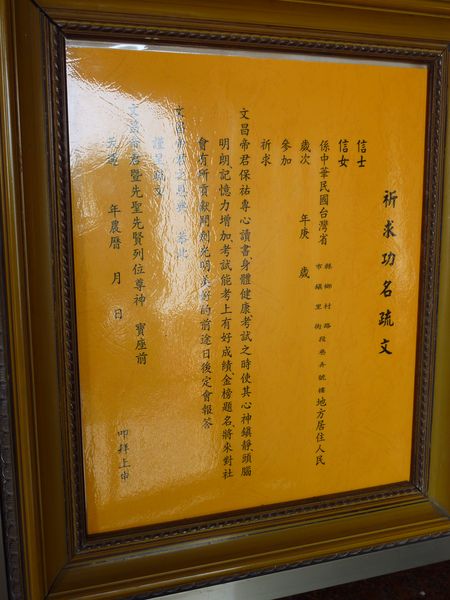 祈求功名疏文
信士
信女
係中華民國台灣省 縣鄉村路 市鎮里街段巷弄號樓 地方居住人民
歲次 年庚 歲
參加
祈求
文昌帝君保祐專心讀書,身體健康,考試之時使其心神鎮靜,頭腦
明朗記憶力增加,考試能考上有好成績,金榜題名,將來對社
會有所貢獻開創光明美好的前途日後定會報答
文昌帝君之恩典 恭此
謹呈疏文
文昌帝君暨先聖先賢列位尊神 寶座前
天運 年農曆 月 日 叩拜上申